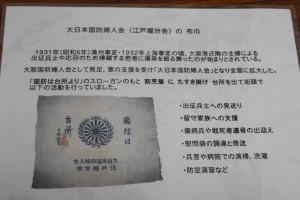 大日本国防婦人会（江戸堀分会）の 布巾
1931年（昭和6年）満州事変・1932年上海事変の頃、大阪港近隣の主婦による
出征兵士や応召のため帰郷する若者に湯茶を賜る舞ったのが始まりとされている。
大阪国防婦人会として発足、軍の支援を受け「大日本国防婦人会」となり全国に拡大した。
「国防は台所より」のスローガンのもと 割烹着 に たすき掛け 台所を出て街頭で
以下の活動を行っていました。
・出征兵士への見送り
・留守家族への支援
・傷病兵や戦死者遺骨の出迎え
・慰問袋の調達と発送
・兵営や病院での清掃、洗濯
・防空演習など
国防は
台所
大日本国防婦人会
江戸堀分会